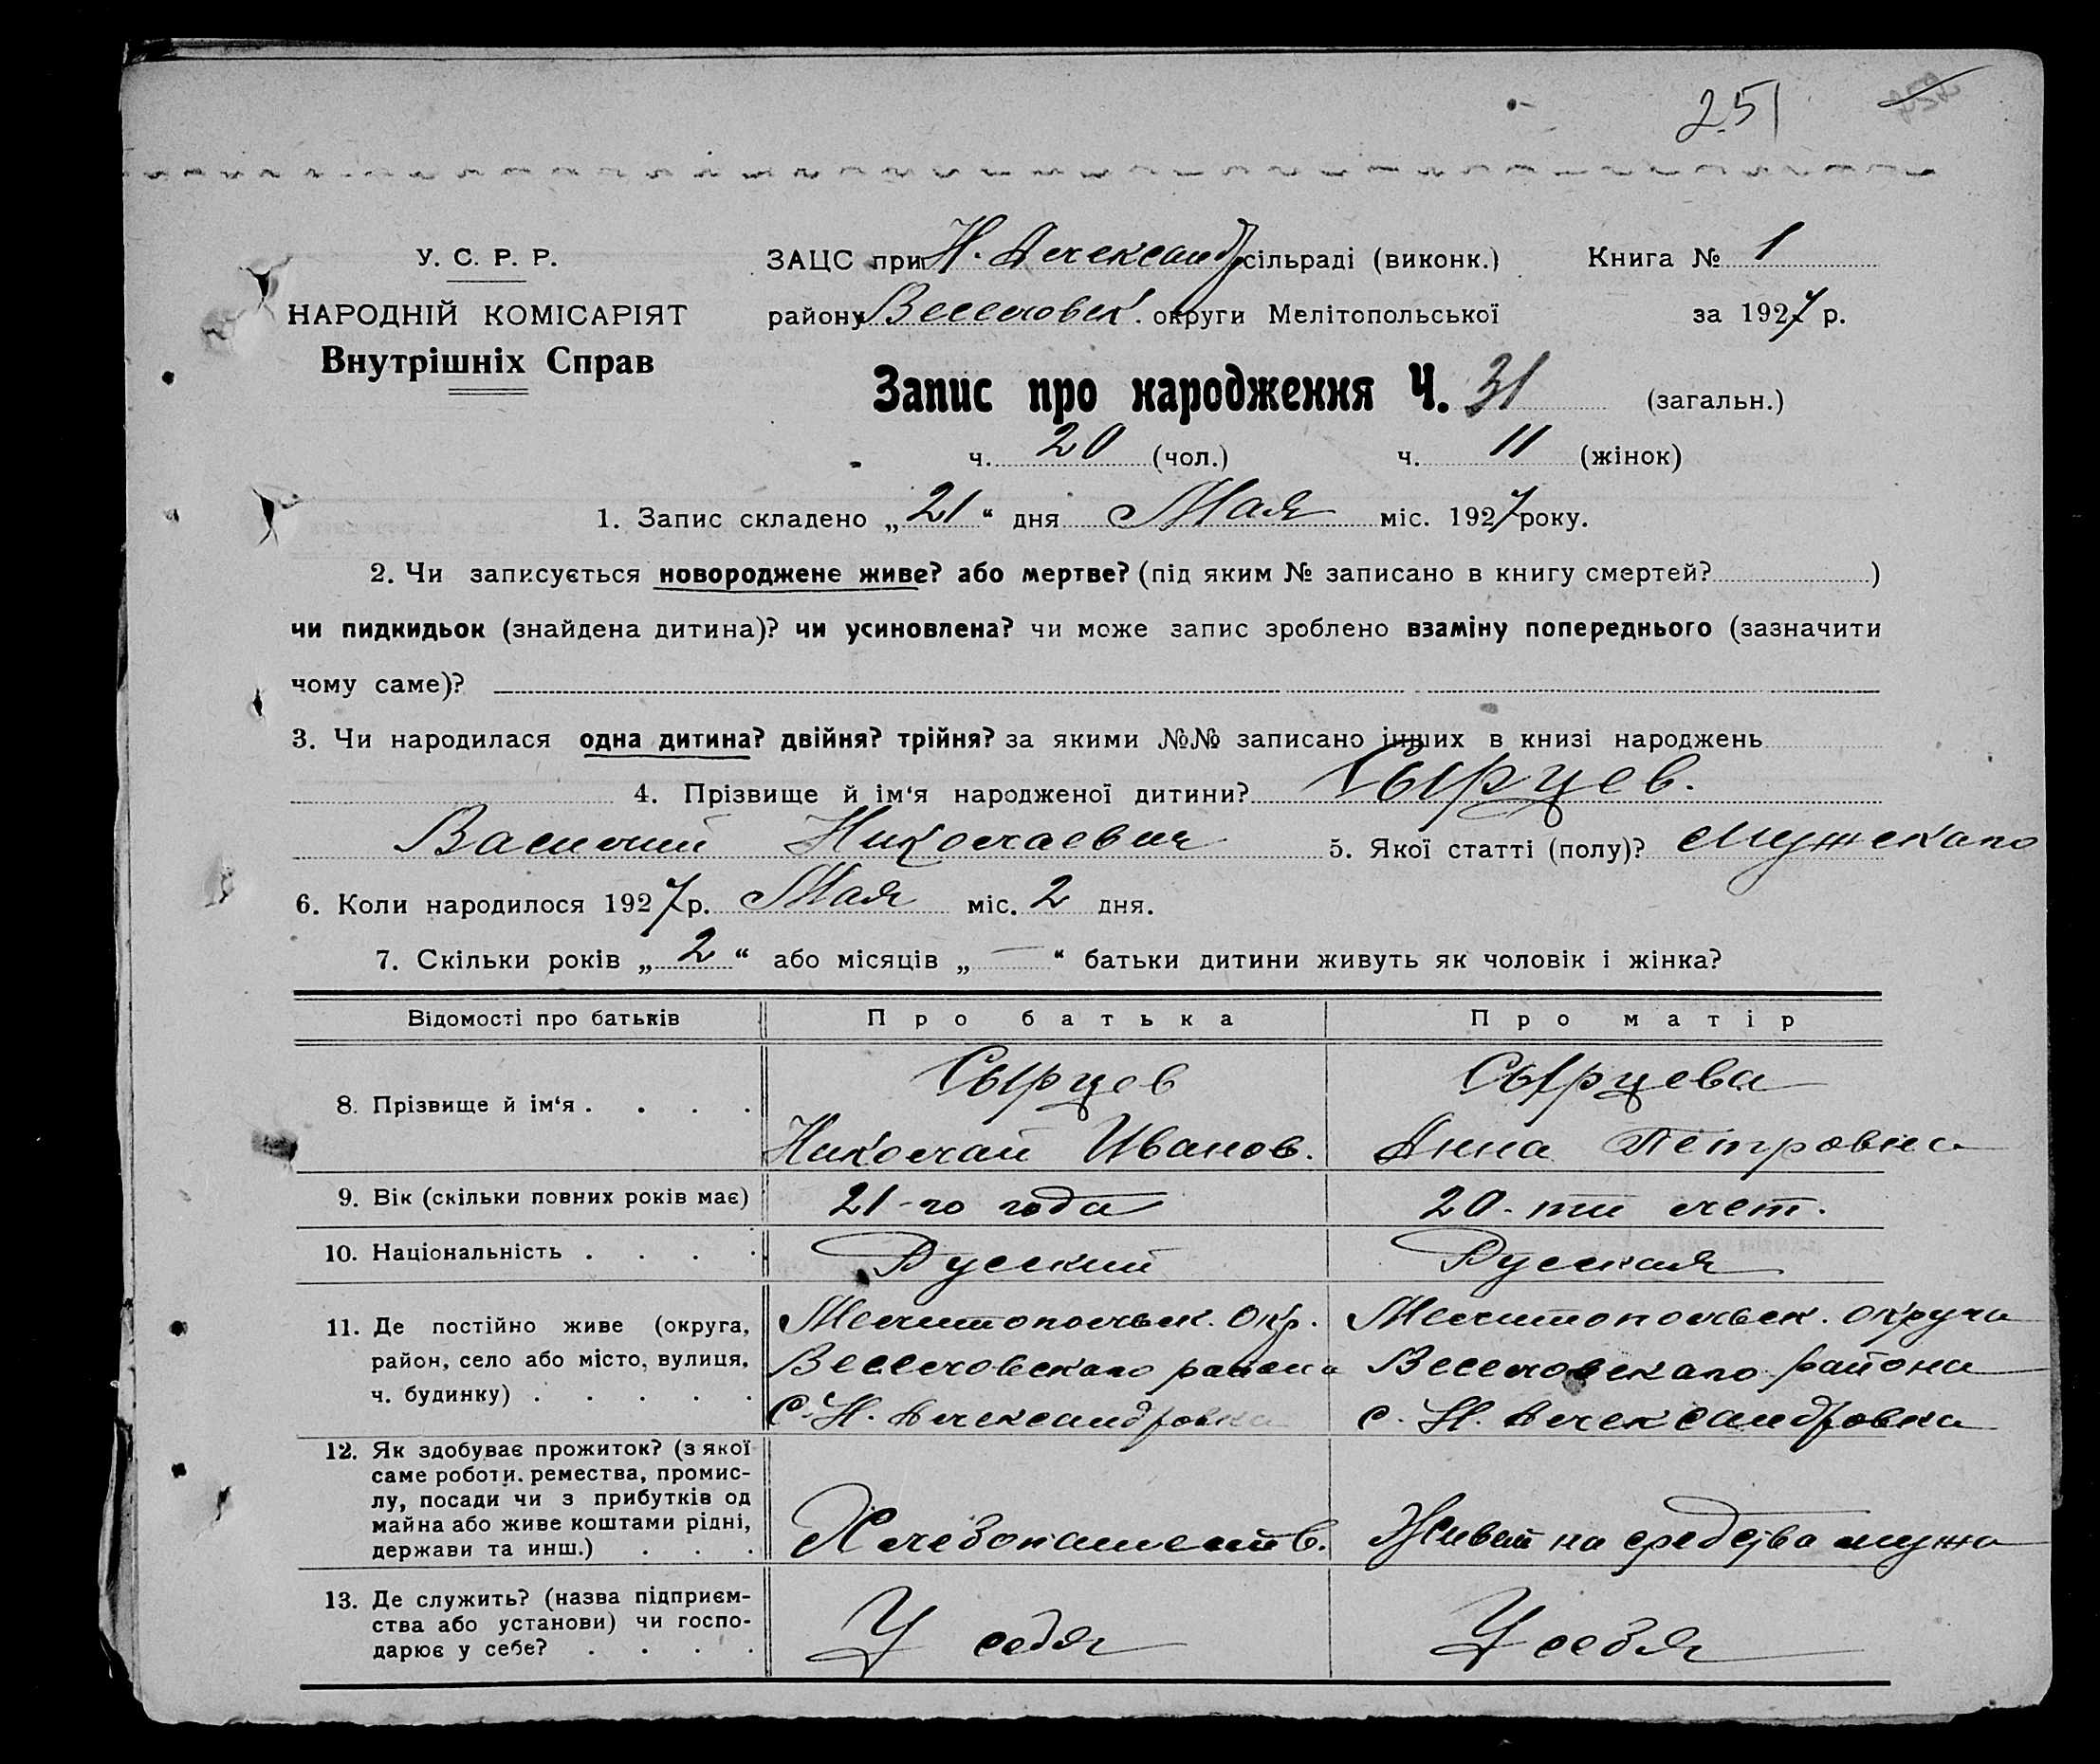 251
У. С. Р. Р.
НАРОДНІЙ КОМІСАРІЯТ
Внутрішніх Справ
ЗАЦС при Н. Александр сільраді (виконк.) Книга № 1
району Веселовск. округи Мелітопольської за 1927 р.
Запис про народження Ч. 31 (загальн.)
ч. 20 (чол.) ч. 11 (жінок)
1. Запис складено „21“ дня Мая міс. 1927 року.
2. Чи записується новороджене живе? або мертве? (під яким № записано в книгу смертей? )
чи пидкидьок (знайдена дитина)? чи усиновлена? чи може запис зроблено взаміну попереднього (зазначити
чому саме)?
3. Чи народилася одна дитина? двійня? трійня? за якими №№ записано інших в книзі народжень
4. Прізвище й ім‘я народженої дитини? Сырцев.
Василий Николаевич 5. Якої статті (полу)? Мужскаго
6. Коли народилося 1927 р. Мая міс. 2 дня.
7. Скільки років „2“ або місяців „—“ батьки дитини живуть як чоловік і жінка?
Відомості про батьків Про батька Про матір
8. Прізвище й ім‘я . . . . Сырцев Сырцева
Николай Иванов. Анна Петровна
9. Вік (скільки повних років має) 21-го года 20-ти лет.
10. Національність . . . . Русский Русская
11. Де постійно живе (округа, Мелитопольск. Окр. Мелитопольск. округа
район, село або місто, вулиця, Веселовскаго района Веселовскаго района
ч. будинку) . . . . . С. Н. Александровка с. Н. Александровка
12. Як здобуває прожиток? (з якої
саме роботи. ремества, промис-
лу, посади чи з прибутків од
майна або живе коштами рідні, Хлебопашеств. Живет на средства мужа
держави та инш.) . . .
13. Де служить? (назва підприєм-
ства або установи) чи госпо- У себя У себя
дарює у себе? . . . .